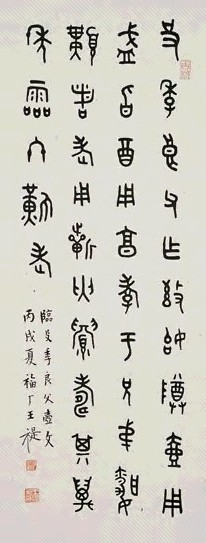 殳季良父乍姒尊壺用
盛旨酉用享孝于兄弟婚
顜者老用旂匄眉壽其萬
年霝冬難老
臨殳季良父壺文
丙戌夏福厂王禔